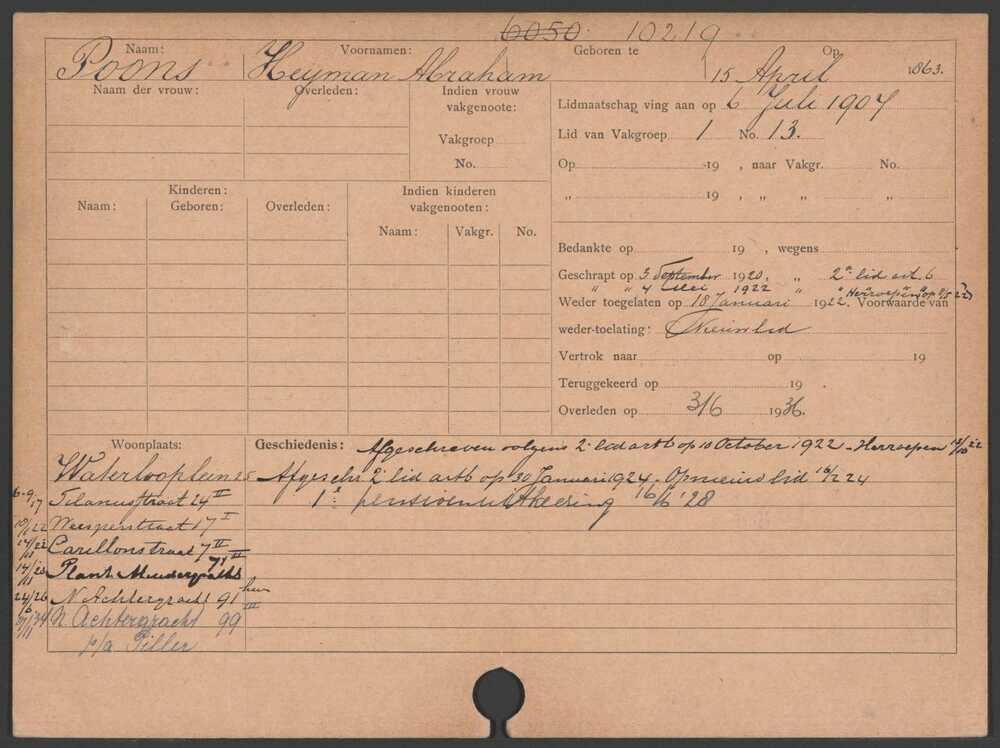 6050 10219
Naam: Voornamen: Geboren te Op
Poons Heyman Abraham 15 April 1863.
Naam der vrouw: Overleden: Indien vrouw vakgenoote:
Vakgroep
No.
Lidmaatschap ving aan op 6 Juli 1907
Lid van Vakgroep 1 No. 13.
Op 19 , naar Vakgr. No.
„ 19 , „ „ „
Kinderen: Indien kinderen vakgenooten:
Naam: Geboren: Overleden: Naam: Vakgr. No.
Bedankte op 19 , wegens
Geschrapt op 3 September 1920. „ 2e lid art. 6
„ „ 4 Mei 1922 „ „ Herroepen op
Weder toegelaten op 18 Januari 1922. Voorwaarde van
weder-toelating: Nieuw lid
Vertrok naar op 19
Teruggekeerd op 19 .
Overleden op 3/6 1936.
Woonplaats: Geschiedenis: Afgeschreven volgens 2e lid art 6 op 10 October 1922 - Herroepen
Waterlooplein 25 Afgeschr 2e lid art 6 op 30 Januari 1924 - Opnieuw lid
6-9-17 Titanusstraat 24 II 1e pensioenuitkeering 16/6 '28
Weesperstraat 17 I
Carillonstraat 7 II
Plant. Muidergracht 71 III
24/6 26 N Achtergracht 91 huis
N. Achtergracht 99 III
p/a Piller